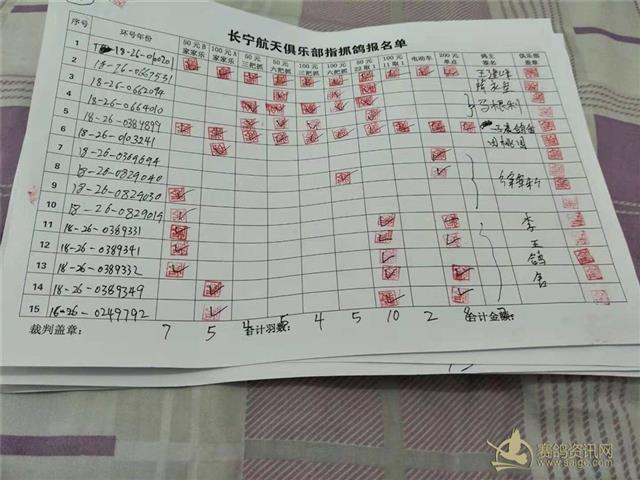 长宁航天俱乐部指抓鸽报名单
序号 环号年份 50元B家家乐 100元A家家乐 50元三把抓 50元六把抓 100元三把抓 100元六把抓 50元22取1 100元11取1 电动车 200元单点 鸽主签名 俱乐部盖章
1 18-26-060201
2 18-26-0667531
3 18-26-0662094
4 18-26-0664010
5 18-26-0389899
6 18-26-0103241
7 18-26-0369694
8 18-26-0829040
9 18-26-0829030
10 18-26-0829019
11 18-26-0389331 李
12 18-26-0389341 王
13 18-26-0389332 鸽
14 18-26-0389349 舍
15 16-26-0249792
裁判盖章: 7 5 4 合计羽数: 5 4 5 10 2 8 合计金额:
赛鸽资讯网
www.saige.com